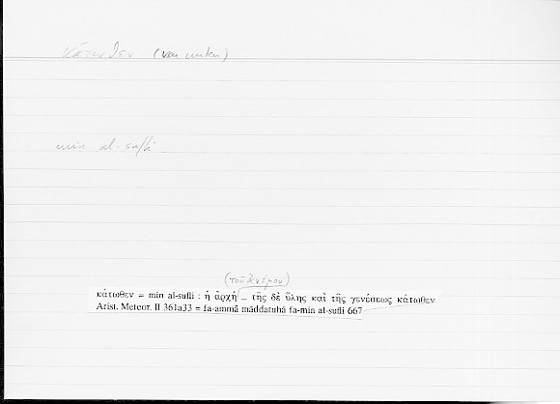 κάτωθεν (von unten)
min al-sufli
(τοῦ ἀνέμου)
κάτωθεν = min al-sufli : ἡ ἀρχὴ ... τῆς δὲ ὕλης καὶ τῆς γενέσεως κάτωθεν
Arist. Meteor. II 361a33 = fa-ammā māddatuhā fa-min al-sufli 667